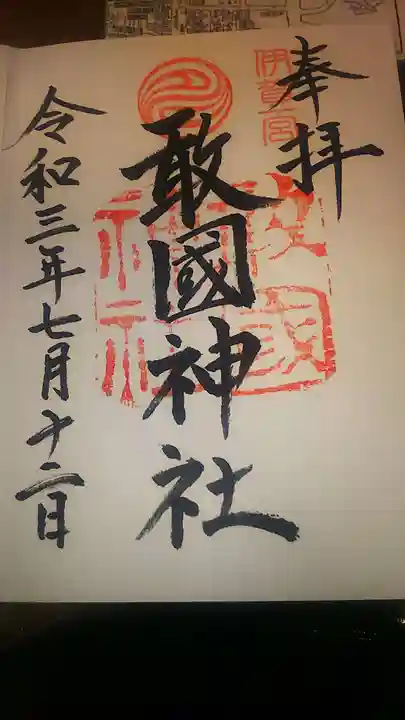 奉拝
伊賀一宮
敢國神社
敢國神社
令和三年七月十二日